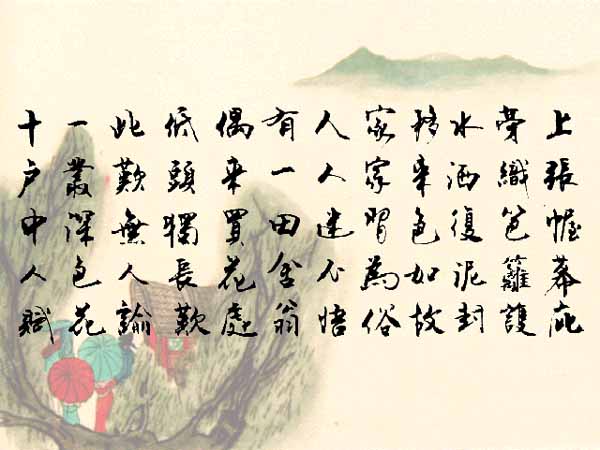 上張幄幕庇
旁織笆籬護
水洒復泥封
移来色如故
家家習為俗
人人迷不悟
有一田舍翁
偶来買花處
低頭獨長歎
此歎無人諭
一叢深色花
十户中人賦